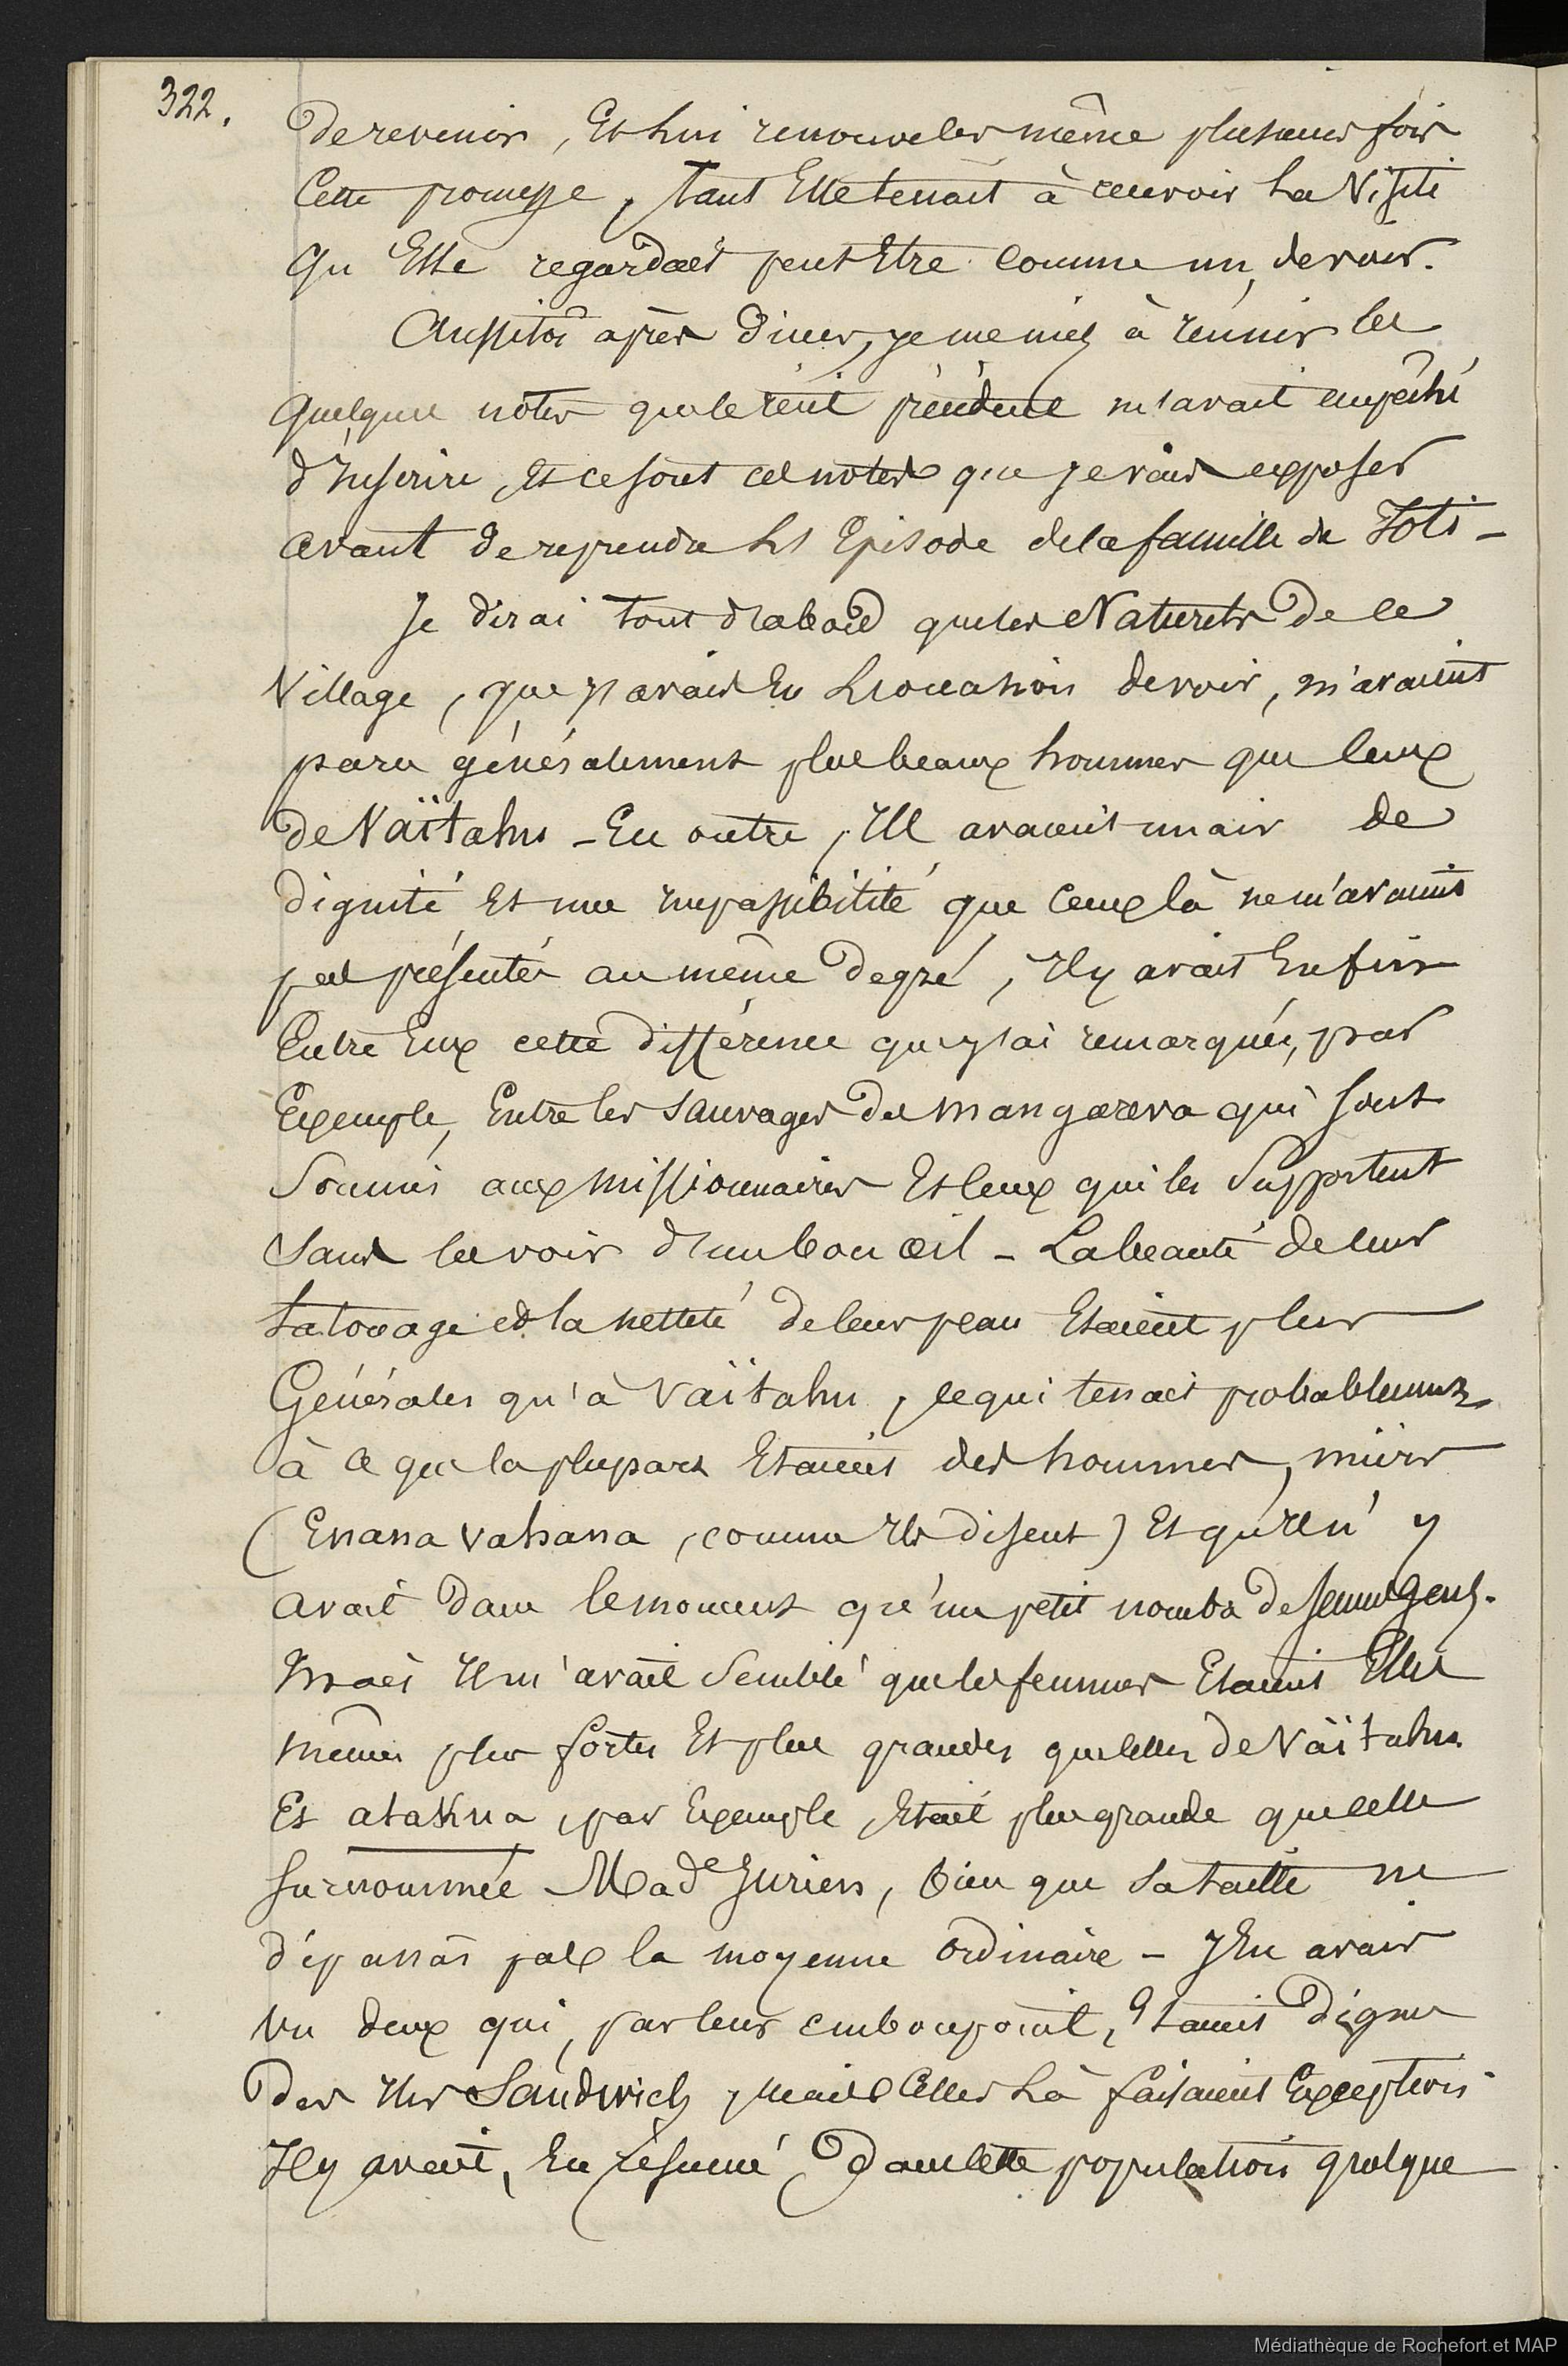 322.
de revenir, Et lui renouveler même plusieurs fois
Cette promesse, tant Elle tenait à recevoir la Visite
Qu'Elle regardait peut Etre comme un devoir.
Aussitôt après diner, je me mis à réunir les
quelques notes que le récit précédent m'avait empêché
d'Inscrire, Et ce sont ces notes que je vais exposer
avant de reprendre les Episode de la famille de Toti -
Je dirai tout d'abord que les Naturels de ce
Village, que j'avais Eu l'occasion de voir, m'avaient
paru généralement plus beaux hommes que ceux
de Vaïtahu - En outre, Ils avaient un air de
dignité Et une impassibilité que Ceux là ne m'avaient
pas présentés au même degré, Il y avait Enfin
Entre Eux cette différence que j'ai remarquée, par
Exemple, Entre les sauvages de Mangareva qui sont
Soumis aux missionnaires Et Ceux qui les Supportent
Sans les voir d'un bon œil - La beauté de leur
tatouage et la netteté de leur peau Etaient plus
Générales qu'à Vaïtahu, ce qui tenait probablement
à ce que la plupart Etaient des hommes, mûrs
(Enana vahana, comme Ils disent) Et qu'Il n'y
avait dans le moment qu'un petit nombre de Jeunes Gens.
Mais Il m'avait Semblé que les femmes Etaient Elles
mêmes plus fortes Et plus grandes que celles de Vaïtahu.
Et atakua, par Exemple, Etait plus grande que celle
surnommée Made Jurien, bien que sa taille ne
dépassât pas la moyenne ordinaire - J'En avais
vu deux qui, par leur embonpoint, Etaient dignes
des Iles Sandwich, mais Celles là faisaient Exception
Il y avait, En résumé, dans cette population quelque
Médiathèque de Rochefort et MAP